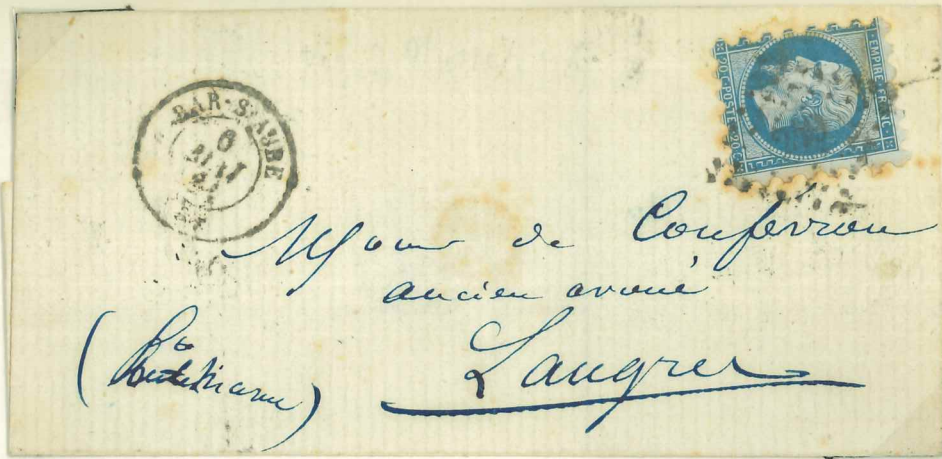 BAR-S-AUBE
6
EMPIRE FRANC
20 c POSTE 20 c
Monsr de Confevron
ancien avoué
Langres
(Hte Marne)